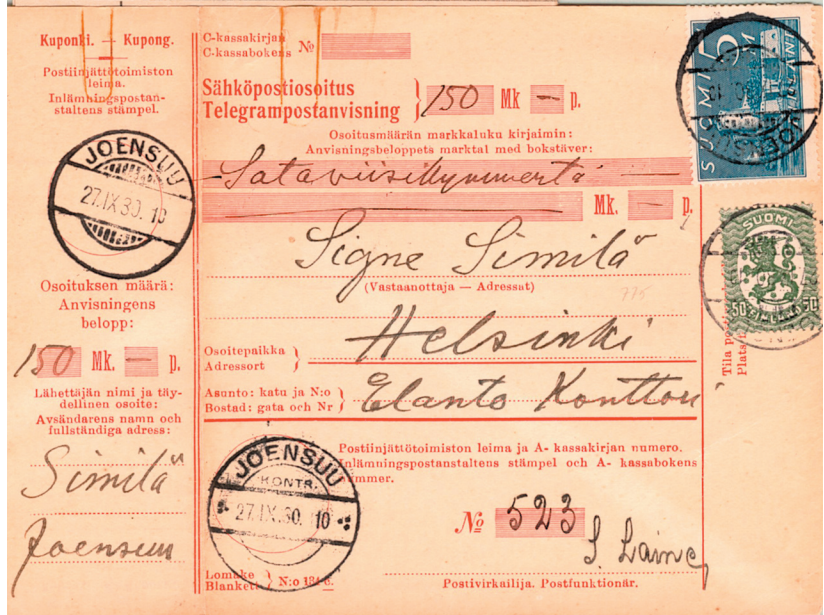 Kuponki. — Kupong.
Postiinjättötoimiston
leima.
Inlämningspostan-
staltens stämpel.
JOENSUU
27.IX.30. 10
Osoituksen määrä:
Anvisningens
belopp:
150 Mk. — p.
Lähettäjän nimi ja täy-
dellinen osoite:
Avsändarens namn och
fullständiga adress:
Similä
Joensuu
C-kassakirjan
C-kassabokens No
Sähköpostiosoitus
Telegrampostanvisning
150 Mk — p.
Osoitusmäärän markkaluku kirjaimin:
Anvisningsbeloppets marktal med bokstäver:
Sataviisikymmentä
Mk. — p.
Signe Similä
(Vastaanottaja — Adressat)
775
Osoitepaikka
Adressort
Helsinki
Asunto: katu ja N:o
Bostad: gata och Nr
Elanto Konttori
Postiinjättötoimiston leima ja A- kassakirjan numero.
Inlämningspostanstaltens stämpel och A- kassabokens
nummer.
JOENSUU
KONTR.
27.IX.30. 10
No 523
S. Laine
Lomake
Blankett N:o 184
Postivirkailija. Postfunktionär.
SUOMI 5 FINLAND
SUOMI
50 FINLAND 50
Tila
Plats